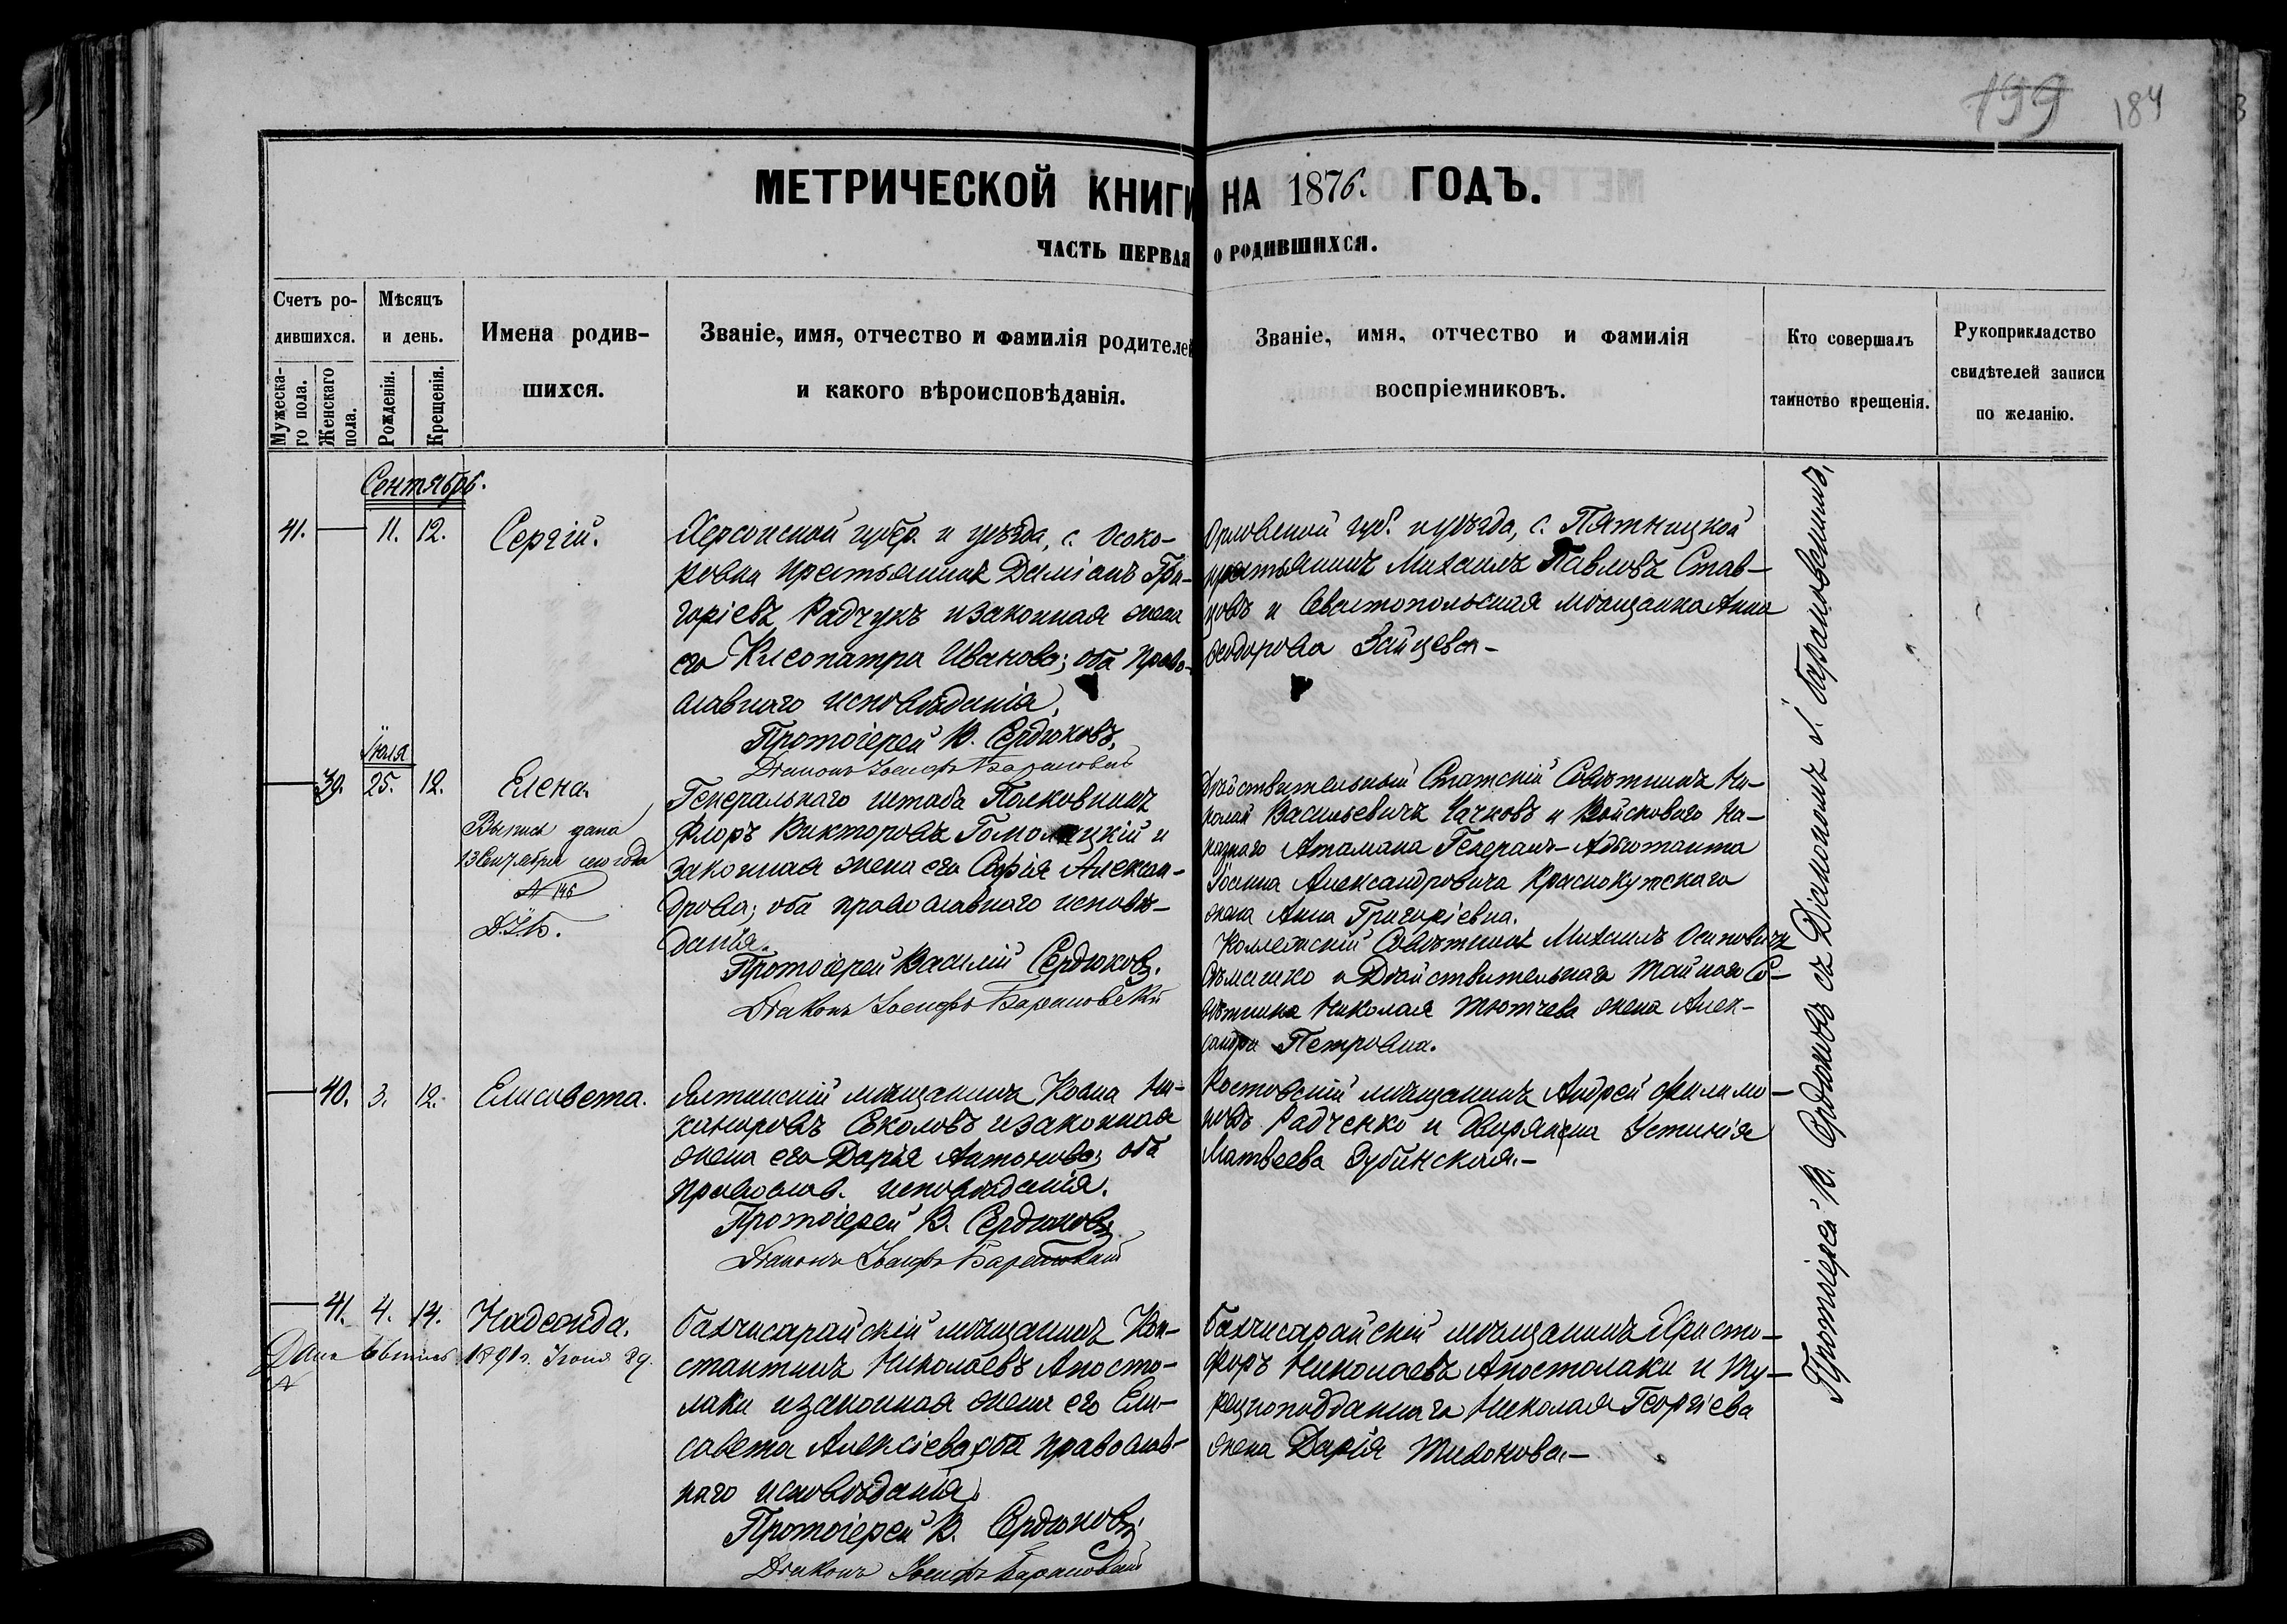 199 184
МЕТРИЧЕСКОЙ КНИГИ НА 1876. ГОДЪ.
ЧАСТЬ ПЕРВАЯ О РОДИВШИХСЯ.
Счетъ ро-
дившихся.
Мужеска-
го пола.
Женскаго
пола.
Мѣсяцъ
и день.
Рожденія.
Крещенія.
Имена родив-
шихся.
Званіе, имя, отчество и фамилія родителей
и какого вѣроисповѣданія.
Званіе, имя, отчество и фамилія
воспріемниковъ.
Кто совершалъ
таинство крещенія.
Рукоприкладство
свидѣтелей записи
по желанію.
Сентябрь.
41. 11. 12. Сергій.
Херсонской губер. и уѣзда, с. Осоко-
ровки крестьянинъ Даміанъ Гри-
горіевъ Радчукъ и законная жена
его Клеопатра Иванова; оба право-
славнаго исповѣданія.
Протоіерей В. Сердюковъ.
Діаконъ Іосифъ Барановскій
Орловской губ. и уѣзда, с. Пятницкой
крестьянинъ Михаилъ Павловъ Став-
цовъ и Севастопольская мѣщанка Анна
Ѳеодорова Зайцева -
Іюля
39. 25. 12. Елена.
Выпись дана
13 Сентября сего года
№ 146
Генеральнаго штаба Полковникъ
Флоръ Викторовъ Гомолицкій и
законная жена его Софія Алексан-
дрова; оба православнаго исповѣ-
данія.
Протоіерей Василій Сердюковъ.
Діаконъ Іосифъ Барановскій
Дѣйствительный Статскій Совѣтникъ Ни-
колай Васильевичъ Чачковъ и Войсковаго На-
казнаго Атамана Генералъ-Адъютанта
Іоанна Александровича Краснокутскаго
жена Анна Григоріевна.
Коллежскій Совѣтникъ Михаилъ Осиповичъ
и Дѣйствительная Тайная Со-
вѣтника Николая Тютчева жена Алек-
сандра Петровна.
40. 3. 12. Елисавета.
Ялтинскій мѣщанинъ Козма Ни-
каноровъ Соколовъ и законная
жена его Дарія Антонова; оба
православ. исповѣданія.
Протоіерей В. Сердюковъ
Діаконъ Іосифъ Барановскій
Ростовскій мѣщанинъ Андрей Филимо-
новъ Радченко и Дворянка Устинія
Матвеева Дубинская. -
41. 4. 14. Надежда.
Дана выпись 1891 г. Іюня 29.
№
Бахчисарайскій мѣщанинъ Кон-
стантинъ Николаевъ Апосто-
лаки и законная жена его Ели-
савета Алексіева; оба православ-
наго исповѣданія.
Протоіерей В. Сердюковъ
Діаконъ Іосифъ Барановскій
Бахчисарайскій мѣщанинъ Христо-
форъ Николаевъ Апостолаки и Ту-
рецкоподданнаго Николая Георгіева
жена Дарія Тихонова. -
Протоіерей В. Сердюковъ съ Діакономъ І. Барановскимъ.